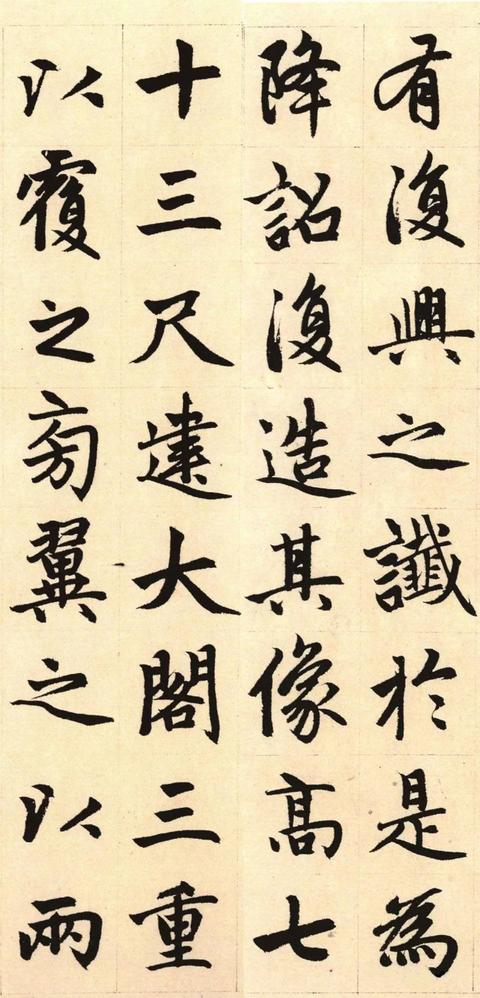 有復興之讖於是為
降詔復造其像高七
十三尺建大閣三重
以覆之旁翼之以兩